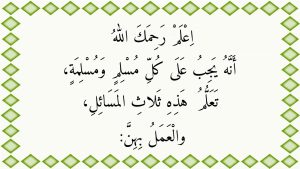 اِعْلَمْ رَحِمَكَ اللهُ
أَنَّهُ يَجِبُ عَلَى كُلِّ مُسْلِمٍ وَمُسْلِمَةٍ،
تَعَلُّمُ هَذِهِ ثَلاثِ المَسَائِلِ،
والْعَمَلُ بِهِنَّ: